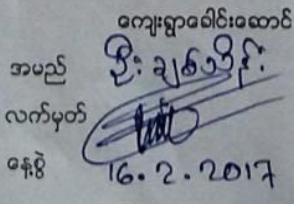 ကျေးရွာခေါင်းဆောင်
အမည် ဦးချစ်သိန်း
လက်မှတ်
နေ့စွဲ 16.2.2017